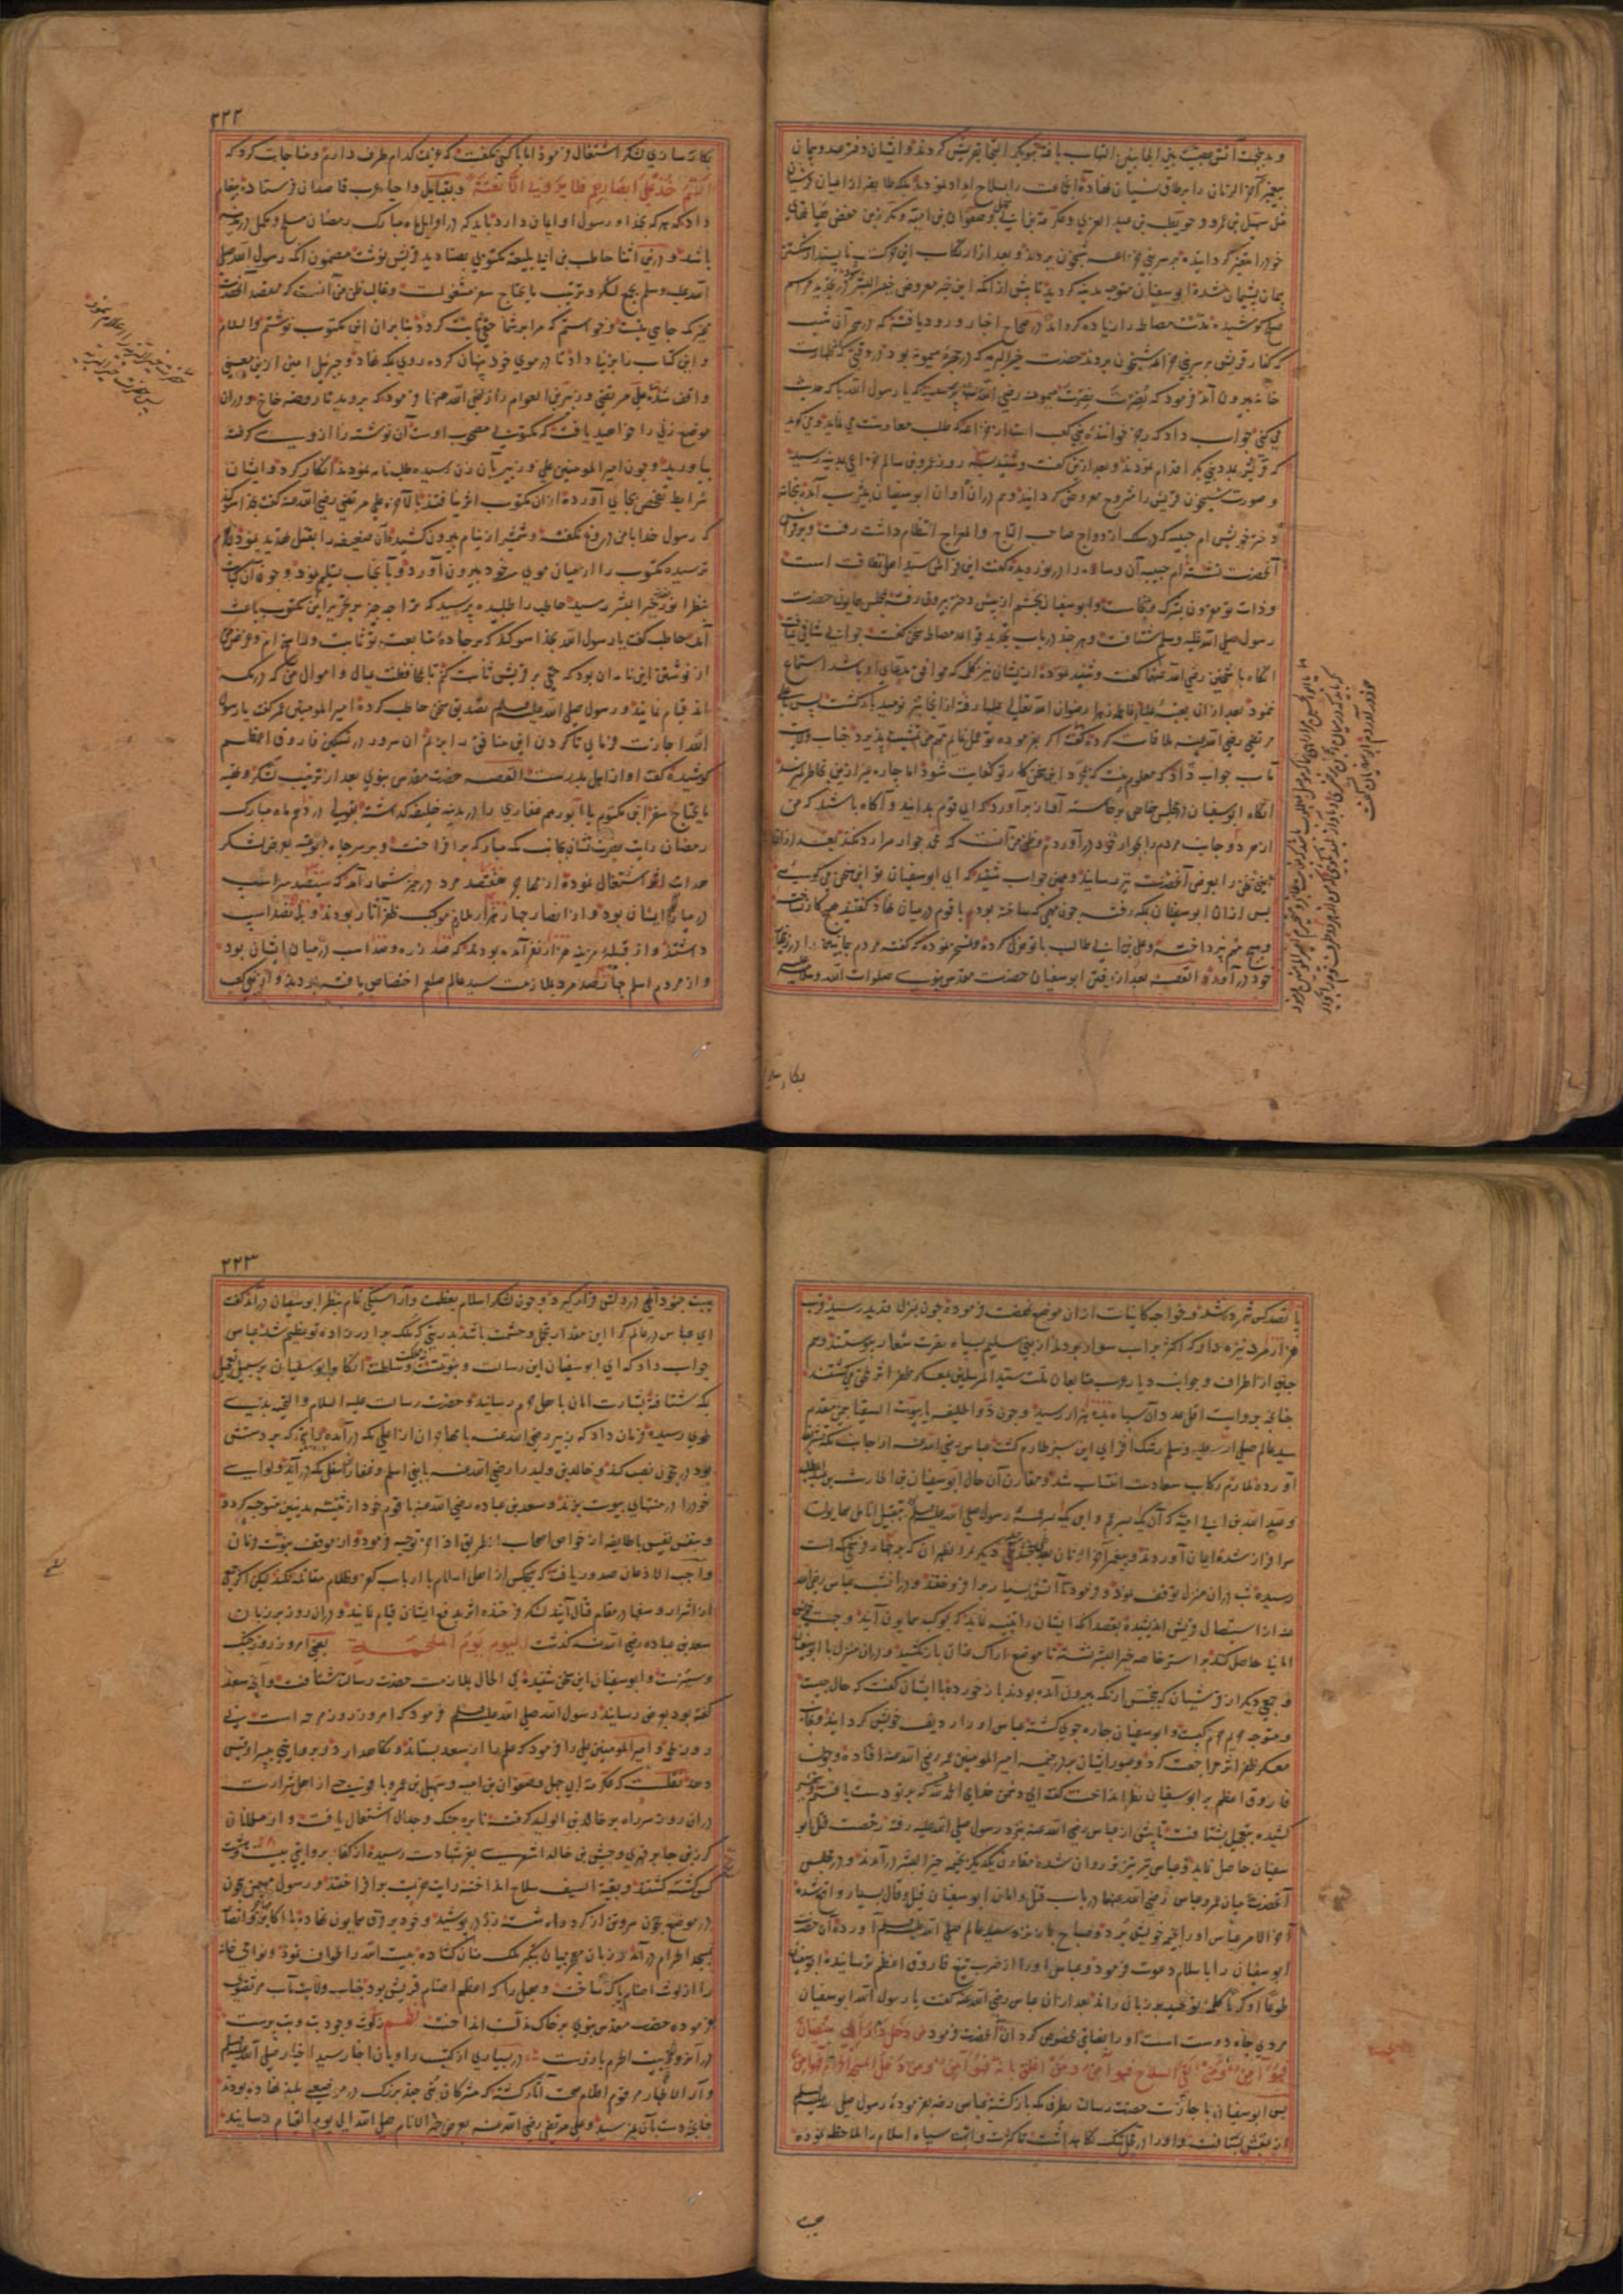 و بدین جهت آتش عصبیت بین الجانبین التهاب یافته بنوبکر التجا بقریش کردند و ایشان
پیغمبر آخر الزمان را بر طاق نسیان نهاده آن جماعت را بسلاح امداد نمودند بلکه طایفه از اعیان قریش
مثل سهیل بن عمرو و حویطب بن عبد العزی و عکرمه بن ابی جهل و صفوان بن امیه و مکرز بن حفص
خود را متغیر گردانیده بر سر بنی خزاعه شبخون بردند و بعد از ارتکاب این حرکت ناپسند از شکستن
پیمان پشیمان شده ابو سفیان متوجه مدینه گردید تا پیش از آنکه این خبر معروض خیر البشر گردد در تجدید مراسم
صلح کوشیده مدت مصالحه را زیاده گرداند در صحاح اخبار ورود یافته که در سحر آن شب
که کفار قریش بر سر بنی خزاعه شبخون بردند حضرت خیر البریه که در حجره میمونه بود در وقتی که بطهارت
خانه بیرون آمد فرمود که نصرت نصرت میمونه رضی الله عنها پرسید که یا رسول الله با که حدیث
می کنی جواب داد که رجز خواننده بنی کعب است از خزاعه که طلب معاونت می نماید و می گوید
که قریش بمدد بنی بکر اقدام نمودند و بعد ازین گفت و شنید سه روز عمرو بن سالم خزاعی بمدینه رسید
و صورت شبیخون قریش را مشروح معروض گردانید و هم در آن اوان ابو سفیان بیثرب آمده بخانه
دختر خویش ام حبیبه که در سلک ازدواج صاحب التاج والمعراج انتظام داشت رفت و بر فراش
آنحضرت نشته ام حبیبه آن وساده را در نوردیده گفت این فراش سید اهل طاقت است
و ذات تو ملوث بشرک و نجاست و ابو سفیان بخشم از پیش دختر بیرون رفته بمجلس همایون حضرت
رسول صلی الله علیه وسلم شتافت و هر چند در باب تجدید قواعد مصالحه سخن گفت جوابی شافی نیافت
آنگاه با شیخین رضی الله عنهما گفت و شنید نموده از ایشان نیز کلمه که موافق مدعای او باشد استماع
ننمود بعد از آن بخانه فاطمه زهرا رضوان الله تعالی علیها رفته از آنجا نیز نومید بازگشت پس با علی
مرتضی رضی الله عنه ملاقات کرده گفت
تاب جواب داد که معلوم نیست که بمجرد این سخن کار تو کفایت شود اما چاره غیر ازین بخاطر نمیرسد
آنگاه ابو سفیان در مجلس خاص برخاسته آواز برآورد که ای قوم بدانید و آگاه باشید که من
از هر دو جانب مردم را بجوار خود در آوردم و ظن من آنست که محمد جوار مرا رد نکند بعد از آن
همین سخن را بعرض آنحضرت نیز رسانید و همین جواب شنید که ای ابو سفیان تو این سخن می گویی
پس از آن ابو سفیان بمکه رفته چون مهمی که ساخته بود با قوم در میان نهاد گفتند هیچ کار نساختی
و هیچ مهم نپرداختی و علی بن ابی طالب با تو هزل کرده و تسخر نموده که گفته مردم جانبین را در زنهار
خود در آورد القصه بعد از رفتن ابو سفیان حضرت مقدس نبوی صلوات الله وسلامه علیه
بکارسازی
۲۲۲
بکارسازی لشکر اشتغال فرمود اما با کسی نگفت که عزیمت کدام طرف دارم و مناجات کرد که
اللهم خذ علی ابصارهم فلا یرونی الا بغتة و بقبایل و احیاء عرب قاصدان فرستاده پیغام
داد که هر که بخدا و رسول او ایمان دارد باید که در اوایل ماه مبارک رمضان مسلح و مکمل در مدینه
باشد و در این اثنا حاطب بن ابی بلتعه مکتوبی بصنادید قریش نوشت مضمون آنکه رسول الله صلی
الله علیه وسلم بجمع لشکر و ترتیب ما یحتاج سفر مشغولست و غالب ظن من آنست که مقصد آنحضرت
بغیر مکه جایی نیست و خواستم که مرا بر شما حقی ثابت گردد بنا بر آن این مکتوب نوشتم والسلام
و این کتاب را بزنی داد تا در موی خود پنهان کرده روی بمکه نهاد و جبرئیل امین ازین معنی
واقف شد علی مرتضی و زبیر بن العوام را رضی الله عنهما فرمود که بروید تا روضه خاخ و در آن
موضع زنی را خواهید یافت که مکتوبی مصحوب اوست آن نوشته را از وی گرفته
بیاورید و چون امیر المومنین علی و زبیر بآن زن رسیده طلب نامه نمودند انکار کرد و ایشان
شرایط تفحص بجای آورده از آن مکتوب اثر نیافتند بالاخره علی مرتضی رضی الله عنه گفت بخدا سوگند
که رسول خدا با من دروغ نگفته و شمشیر از نیام بیرون کشیده آن ضعیفه را بقتل تهدید نمود
ترسیده مکتوب را از میان موی سر خود بیرون آورد و بآنجناب تسلیم نمود و چون آن کتاب
بنظر انور خیر البشر رسید حاطب را طلبیده پرسید که ترا چه چیز بر تحریر این مکتوب باعث
آمد حاطب گفت یا رسول الله بخدا سوگند که بر جاده متابعت تو ثابت و راسخم و غرض من
از نوشتن این نامه آن بود که حقی بر قریش ثابت کنم تا بمحافظت عیال و اموال من که در مکه
اند قیام نمایند و رسول صلی الله علیه وسلم تصدیق سخن حاطب کرده امیر المومنین عمر گفت یا رسول
الله اجازت فرمای تا گردن این منافق را بزنم آن سرور در تسکین فاروق اعظم
کوشیده گفت او از اهل بدرست القصه حضرت مقدس نبوی بعد از ترتیب لشکر و تهیه
ما یحتاج سفر ابن مکتوم یا ابو رهم غفاری را در مدینه خلیفه گذاشته بقولی در دهم ماه مبارک
رمضان رایت نصرت نشان بجانب مکه مبارکه برافراخت و بر سر چاه ابو عتبه بعرض لشکر
هدایت اثر اشتغال نموده از مهاجر هفتصد مرد در حیز شمار آمد که سیصد سر اسب
در میان ایشان بود و از انصار چهار هزار ملازم موکب ظفر آثار بودند و پانصد اسب
داشتند و از قبیله مزینه هزار نفر آمده بودند که صد زره و صد اسب در میان ایشان بود
و از مردم اسلم چهارصد مرد بملازمت سید عالم صلعم اختصاص یافته بودند و از بنی کعب
پانصد کس شمرده شد و خواجه کاینات از آن موضع نهضت فرموده چون بمنزل قدید رسید قرب
هزار مرد نیزه دار که اکثر بر اسب سوار بودند از بنی سلیم بسپاه نصرت شعار پیوستند و هم
چنین از اطراف و جوانب دیار عرب متابعان ملت سید المرسلین بمعسکر ظفر اثر ملحق می گشتند
چنانچه بروایت اقل عدد آن سپاه بده هزار رسید و چون ذو الحلیفه یا بیوت السقیا بیمن مقدم
سید عالم صلی الله علیه وسلم رشک افزای این سبز طارم گشت عباس رضی الله عنه از جانب مکه تشریف
آورده ملازم رکاب سعادت انتساب شد و مقارن آن حال ابو سفیان بن الحارث بن عبد المطلب
و عبد الله بن ابی امیه که آن یک پسر عم و این یک پسر عمه رسول صلی الله علیه وسلم بتقبیل انامل همایون
سرافراز شده ایمان آوردند و پیغمبر آخر الزمان بمر الظهران که چهار فرسخی مکه است
رسیده شب در آن منزل توقف نمود و فرمود تا آتش بسیار برافروختند و در آن شب عباس رضی الله
عنه از استیصال قریش اندیشیده بقصد آنکه ایشان را تنبیه نماید که بموکب همایون آیند و جهت خویش
امانی حاصل کنند بر استر خاصه خیر البشر نشسته تا موضع اراک عنان باز نکشید و در آن منزل با ابو سفیان
و جمعی دیگر از قرشیان که بتجسس از مکه بیرون آمده بودند باز خورده با ایشان گفت که حال چیست
و متوجه حرم کیست و ابو سفیان چاره جوی گشته عباس او را ردیف خویش گردانید و بجانب
معسکر ظفر اثر مراجعت کرد و عبور ایشان بر در خیمه امیر المومنین عمر رضی الله عنه افتاده و چون
فاروق اعظم بر ابو سفیان نظر انداخت گفت ای دشمن خدای الحمد لله که بر تو دست یافتم و شمشیر
کشیده بتعجیل بشتافت تا پیش از عباس رضی الله عنه نزد رسول صلی الله علیه رفته رخصت قتل ابو
سفیان حاصل نماید و عباس تیزتر روان شده مقارن یکدیگر بخیمه خیر البشر در آمدند و در مجلس
آنحضرت میان عمر و عباس رضی الله عنهما در باب قتل و امان ابو سفیان قیل و قال بسیار واقع شده
آخر الامر عباس او را بخیمه خویش برد و صباح باز نزد سید عالم صلی الله علیه وسلم آورد و آن حضرت
ابو سفیان را باسلام دعوت فرمود و عباس او را از ضرب تیغ فاروق اعظم ترسانیده ابو سفیان
طوعا او کرها کلمه توحید بر زبان راند بعد از آن عباس رضی الله عنه گفت یا رسول الله ابو سفیان
مردی جاه دوست است او را بعنایتی مخصوص گردان آنحضرت فرمود من دخل دار ابی سفیان
فهو آمن ومن القی السلاح فهو آمن ومن اغلق بابه فهو آمن ومن دخل المسجد الحرام فهو آمن
پس ابو سفیان با جازت حضرت رسالت بطرف مکه بازگشته عباس رضه بفرموده رسول صلی الله علیه وسلم
از عقبش بشتافت و او را در محل تنگ نگاه داشت تا کثرت و ابهت سپاه اسلام را ملاحظه نموده
۲۲۳
هیبت جنود الهی در دلش قرار گیرد و چون لشکر اسلام بعظمت و آراستگی تمام بنظر ابو سفیان در آمد گفت
ای عباس در عالم کرا این مقدار تجمل و حشمت باشد بدرستی که ملک برادر زاده تو عظیم شد عباس
جواب داد که ای ابو سفیان این رسالت و نبوتست نه مملکت و سلطنت آنگاه ابو سفیان بر سبیل تعجیل
بمکه شتافته بشارت امان باهل حرم رسانید و حضرت رسالت علیه السلام والتحیه بذی
طوی رسیده فرمان داد که زبیر رضی الله عنه با مهاجران از اعلی مکه در آمده رایتی که بر دستش
بود در حجون نصب کند و خالد بن ولید را رضی الله عنه با بنی اسلم و غفار از اسفل مکه در آید و لوای
خود را در منتهای بیوت بزند و سعد بن عباده رضی الله عنه با قوم خود از ثنیه مدنیین متوجه گردد
و بنفس نفیس با طایفه از خواص اصحاب از طریق اذاخر توجه فرمود و از موقف نبوت فرمان
واجب الاذعان صدور یافت که هیچکس از اهل اسلام با ارباب کفر و ظلام مقاتله نکند لیکن اگر جمعی
از اشرار و سفها در مقام قتال آیند لشکر فرخنده اثر بدفع ایشان قیام نمایند و در آن روز بر زبان
سعد بن عباده رضی الله عنه گذشت الیوم یوم الملحمة یعنی امروز روز جنگ
و ستیزست و ابو سفیان این سخن شنیده فی الحال بملازمت حضرت رسالت شتافت و آنچه سعد
گفته بود بعرض رسانید رسول الله صلی الله علیه وسلم فرمود که امروز روز مرحمه است نی
روز ملحمه و امیر المومنین علی را فرمود که علم را از سعد بستاند و نگاهدارد و بروایتی به پسر او قیس
دهد نقلست که عکرمه بن ابی جهل و صفوان بن امیه و سهیل بن عمرو با فوجی از اهل شرارت
در آن روز سر راه بر خالد بن الولید گرفته نایره جنگ و جدال اشتعال یافت و از مسلمانان
کرز بن جابر فهری و حبیش بن خالد اشعری بعز شهادت رسیده از کفار بروایتی بیست و هشت
کس کشته گشتند و بقیة السیف سلاح انداخته رایت هزیمت برافراختند و رسول مهیمن بیچون
در موضع حجون سر و تن از گرد راه شسته زره پوشید و خود بر فرق همایون نهاده با اکابر مهاجر و انصار
بمسجد الحرام در آمد و زبان معجز بیان بتکبیر ملک منان گشاده بیت الله را طواف نمود و نواحی خانه
را از لوث اصنام پاک ساخت و هبل را که اعظم اصنام قریش بود جناب ولایت مآب مرتضوی
بفرموده حضرت مقدس نبوی بر خاک مذلت انداخت نظم ز لوث وجود بت و بت پرست
در آن روز بیت الحرم باز رست در بسیاری از کتب راویان اخبار سید اخیار صلی الله علیه وسلم
و آله الاطهار مرقوم اقلام صحت آثار گشته که مشرکان بتی چند بزرگ در موضعی بلند نهاده بودند
چنانچه دست بآن نمیرسید و علی مرتضی رضی الله عنه بعرض خیر الانام صلی الله الی یوم القیام رسانید